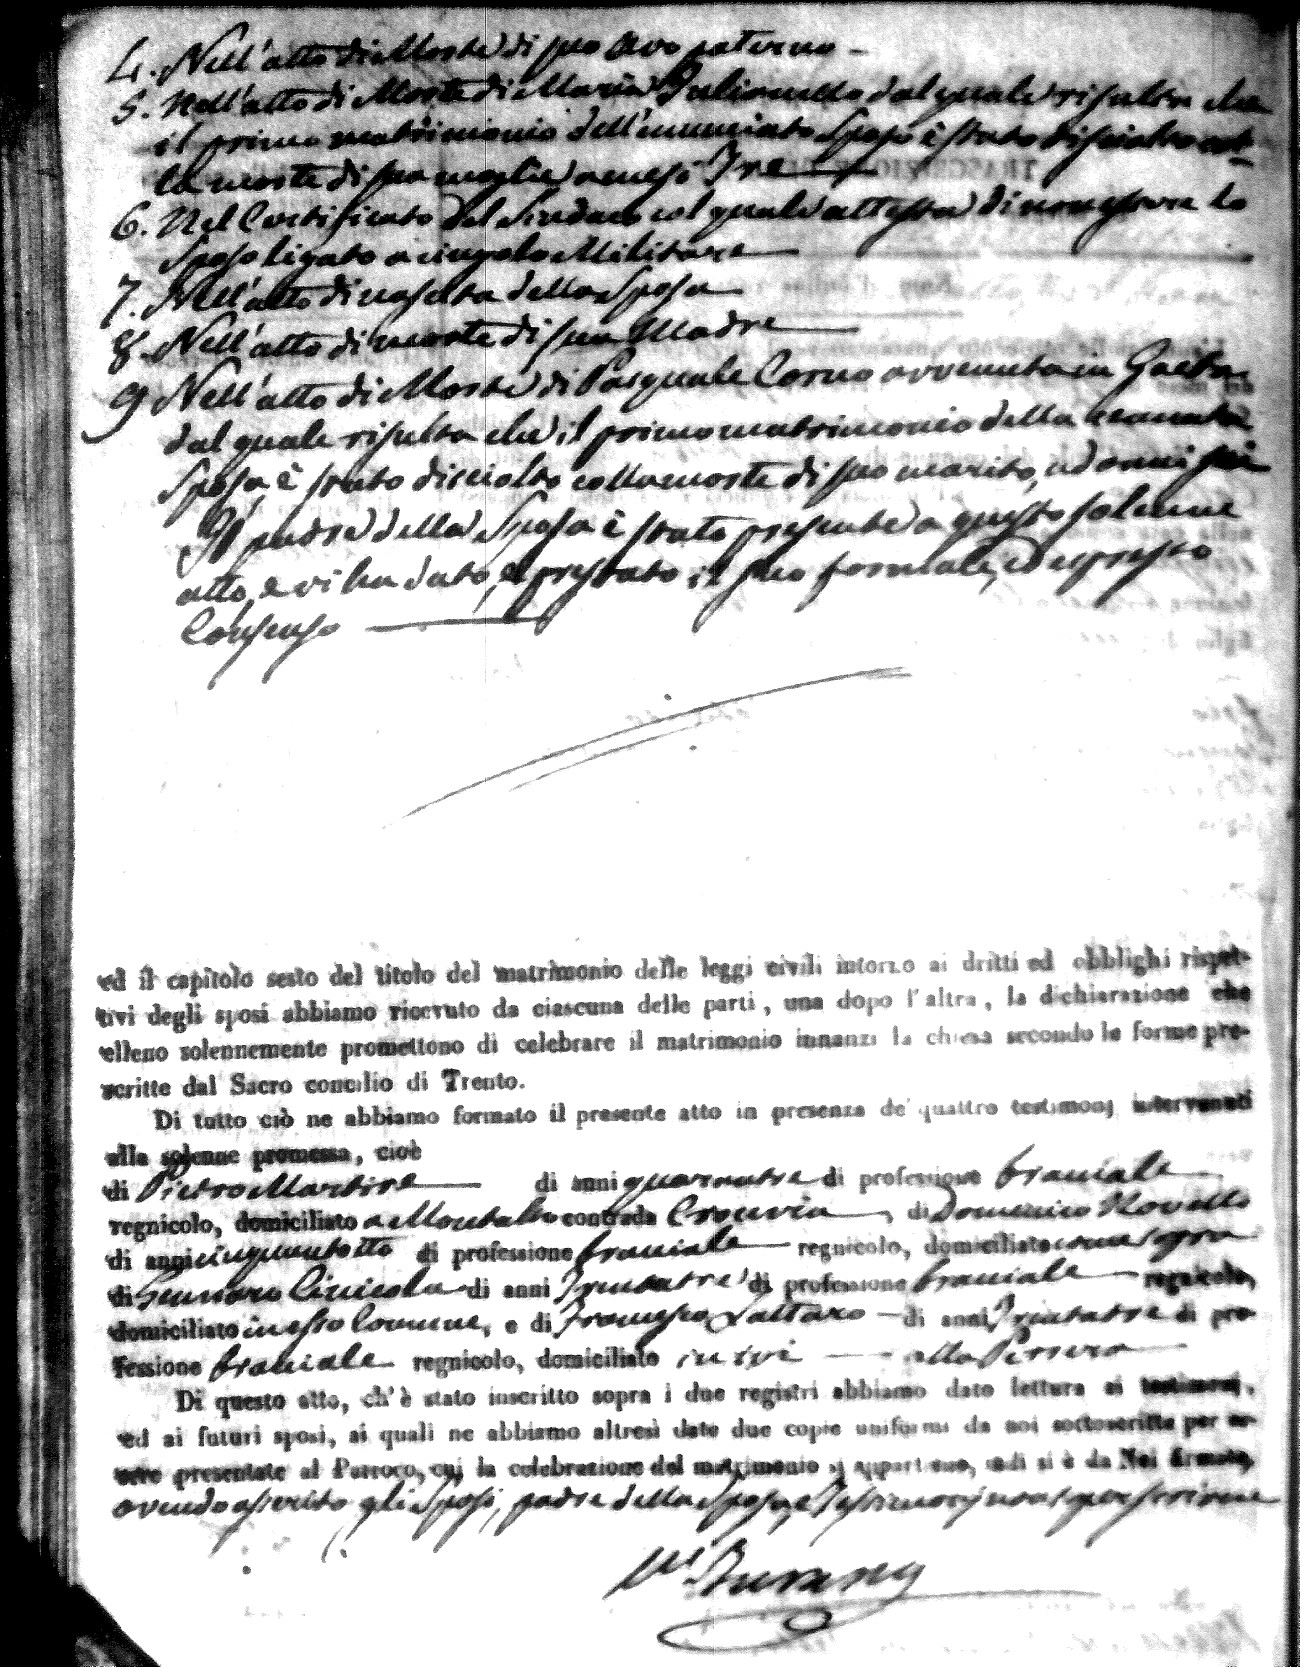 4. Nell'atto di Morte di suo Avo paterno
5. Nell'atto di Morte di Maria dal quale risulta che
il primo matrimonio dell'enunciato Sposo è stato disciolto col-
la morte di sua moglie
6. Nel Certificato del Sindaco col quale attesta di non essere lo
Sposo ligato a cingolo Militare
7. Nell'atto di nascita della Sposa
8. Nell'atto di morte di sua Madre
9 Nell'atto di Morte di Pasquale Corno avvenuta in Gaeta
dal quale risulta che il primo matrimonio della
Sposa è stato disciolto colla morte di suo marito,
Il padre della Sposa è stato presente a questo solenne
atto, e vi ha dato, e prestato il suo formale, ed espresso
Consenso
ed il capitolo sesto del titolo del matrimonio delle leggi civili intorno ai dritti ed obblighi rispet-
tivi degli sposi abbiamo ricevuto da ciascuna delle parti, una dopo l'altra, la dichiarazione che
elleno solennemente promettono di celebrare il matrimonio innanzi la chiesa secondo le forme pre-
scritte dal Sacro concilio di Trento.
Di tutto ciò ne abbiamo formato il presente atto in presenza de' quattro testimonj intervenuti
alla solenne promessa, cioè
di Pietro Martire di anni quarantatre di professione braciale
regnicolo, domiciliato a Montalto contrada , di Domenico Novello
di anni cinquantotto di professione braciale regnicolo, domiciliato come sopra
di Gennaro di anni Trentatre di professione braciale regnicolo,
domiciliato in esso Comune, e di Francesco Lattaro di anni Trentatre di pro-
fessione braciale regnicolo, domiciliato ivi
Di questo atto, ch'è stato inscritto sopra i due registri abbiamo dato lettura ai testimonj,
ed ai futuri sposi, ai quali ne abbiamo altresì date due copie uniformi da noi sottoscritte per es-
sere presentate al Parroco, cui la celebrazione del matrimonio si appartiene, indi si è da Noi firmato,
avendo asserito gli Sposi, padre della Sposa, e Testimonj non saper scrivere